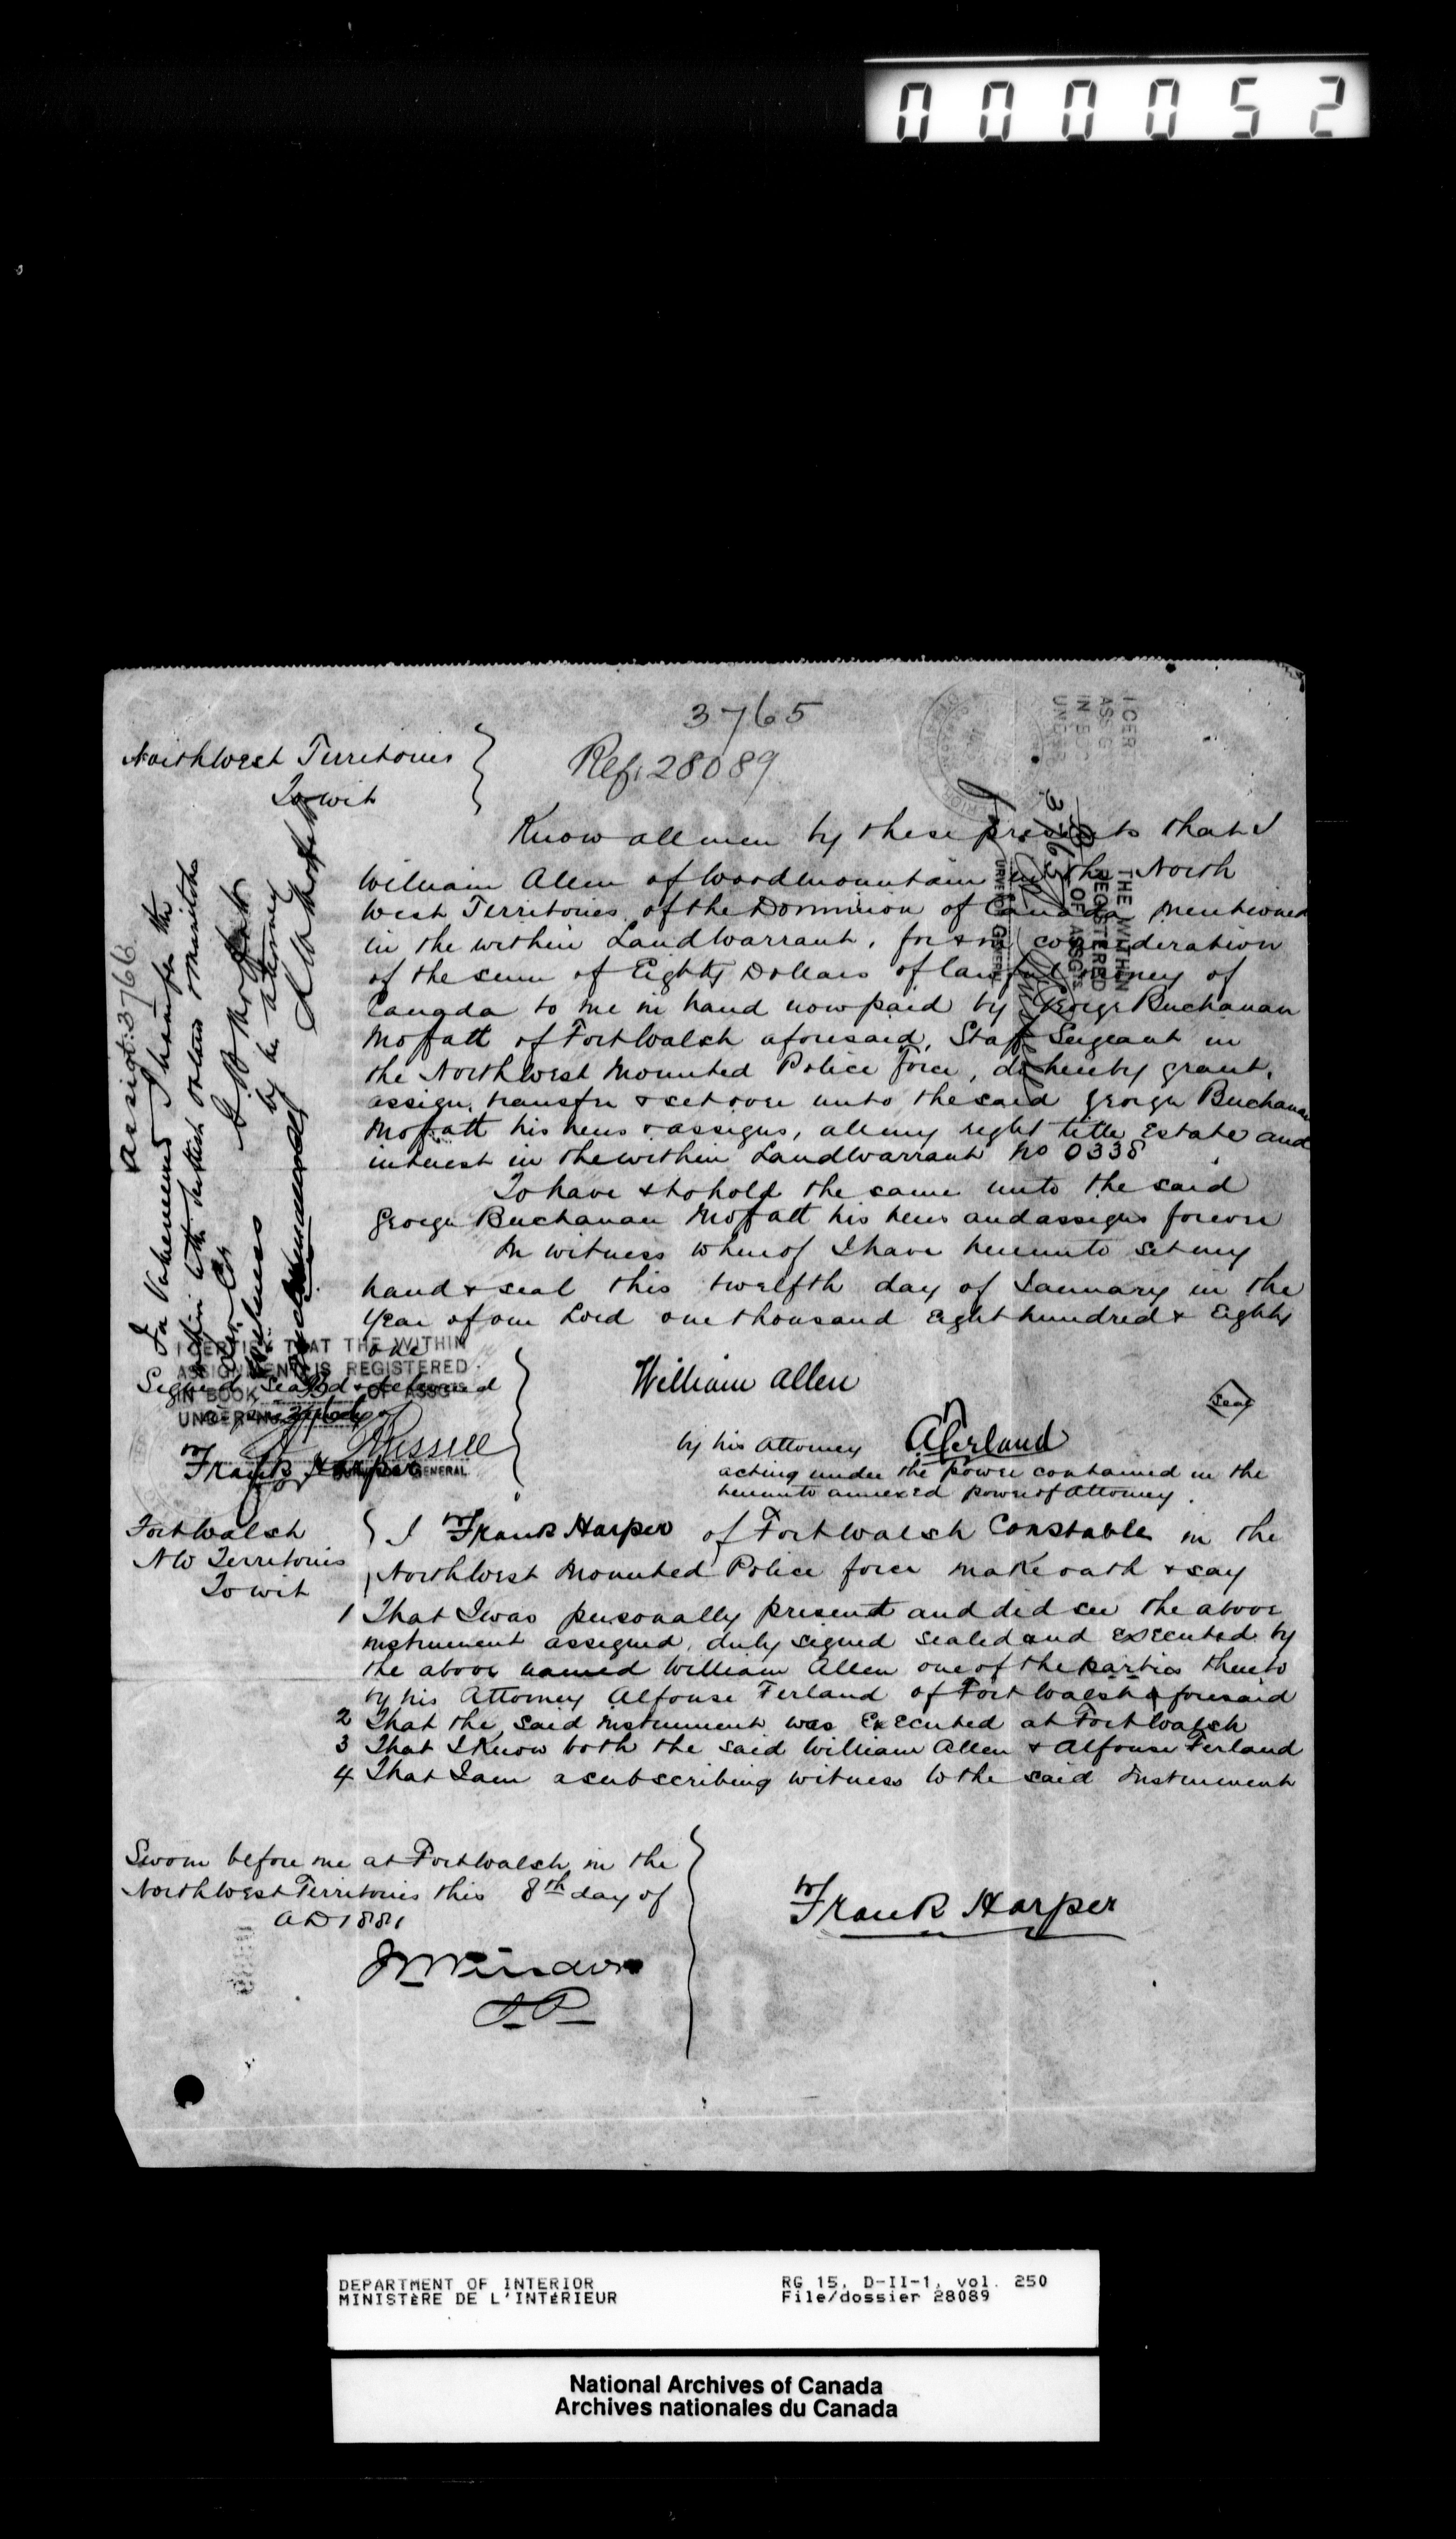 0 0 0 0 5 2
3765
Ref: 28089
Northwest Territories
To wit
Know all men by these presents that I
William Allen of Woodmountain in the North
West Territories of the Dominion of Canada mentioned
in the within Land Warrant, for & in consideration
of the sum of Eighty Dollars of lawful money of
Canada to me in hand now paid by George Buchanan
Moffatt of Fort Walsh aforesaid, Staff Sergeant in
the Northwest Mounted Police force, do hereby grant,
assign, transfer & set over unto the said George Buchanan
Moffatt his heirs & assigns, all my right title Estate and
interest in the within Land Warrant No 0338
To have & to hold the same unto the said
George Buchanan Moffatt his heirs and assigns forever
In witness whereof I have hereunto set my
hand & seal this twelfth day of January in the
Year of our Lord one thousand Eight hundred & Eighty
one
Signed Sealed & delivered
in presence of
Frank Harper
William Allen
Seal
by his Attorney A Ferland
acting under the power contained in the
hereunto annexed power of Attorney.
Fort Walsh
NW Territories
To wit
I Frank Harper of Fort Walsh Constable in the
Northwest Mounted Police force make oath & say
1 That I was personally present and did see the above
instrument assigned, duly signed sealed and Executed by
the above named William Allen one of the parties thereto
by his Attorney Alfonse Ferland of Fort Walsh aforesaid
2 That the said instrument was Executed at Fort Walsh
3 That I Know both the said William Allen & Alfonse Ferland
4 That I am a subscribing witness to the said Instrument
Sworn before me at Fort Walsh in the
Northwest Territories this 8th day of
AD 1881
JP
Frank Harper
Assigt: 3766
For Value received I transfer the
within to the
by his attorney
Witness
I CERTIFY THAT THE WITHIN
ASSIGNMENT IS REGISTERED
IN BOOK OF ASSG'S
UNDER No
A Russell
for SURVEYOR GENERAL
I CER
ASSIG
IN BOO
UNDER
3765
THE WITHIN
REGISTERED
OF ASSG'S
SURVEYOR GENERAL
DEPARTMENT OF INTERIOR
MINISTÈRE DE L'INTÉRIEUR
RG 15, D-II-1, vol. 250
File/dossier 28089
National Archives of Canada
Archives nationales du Canada